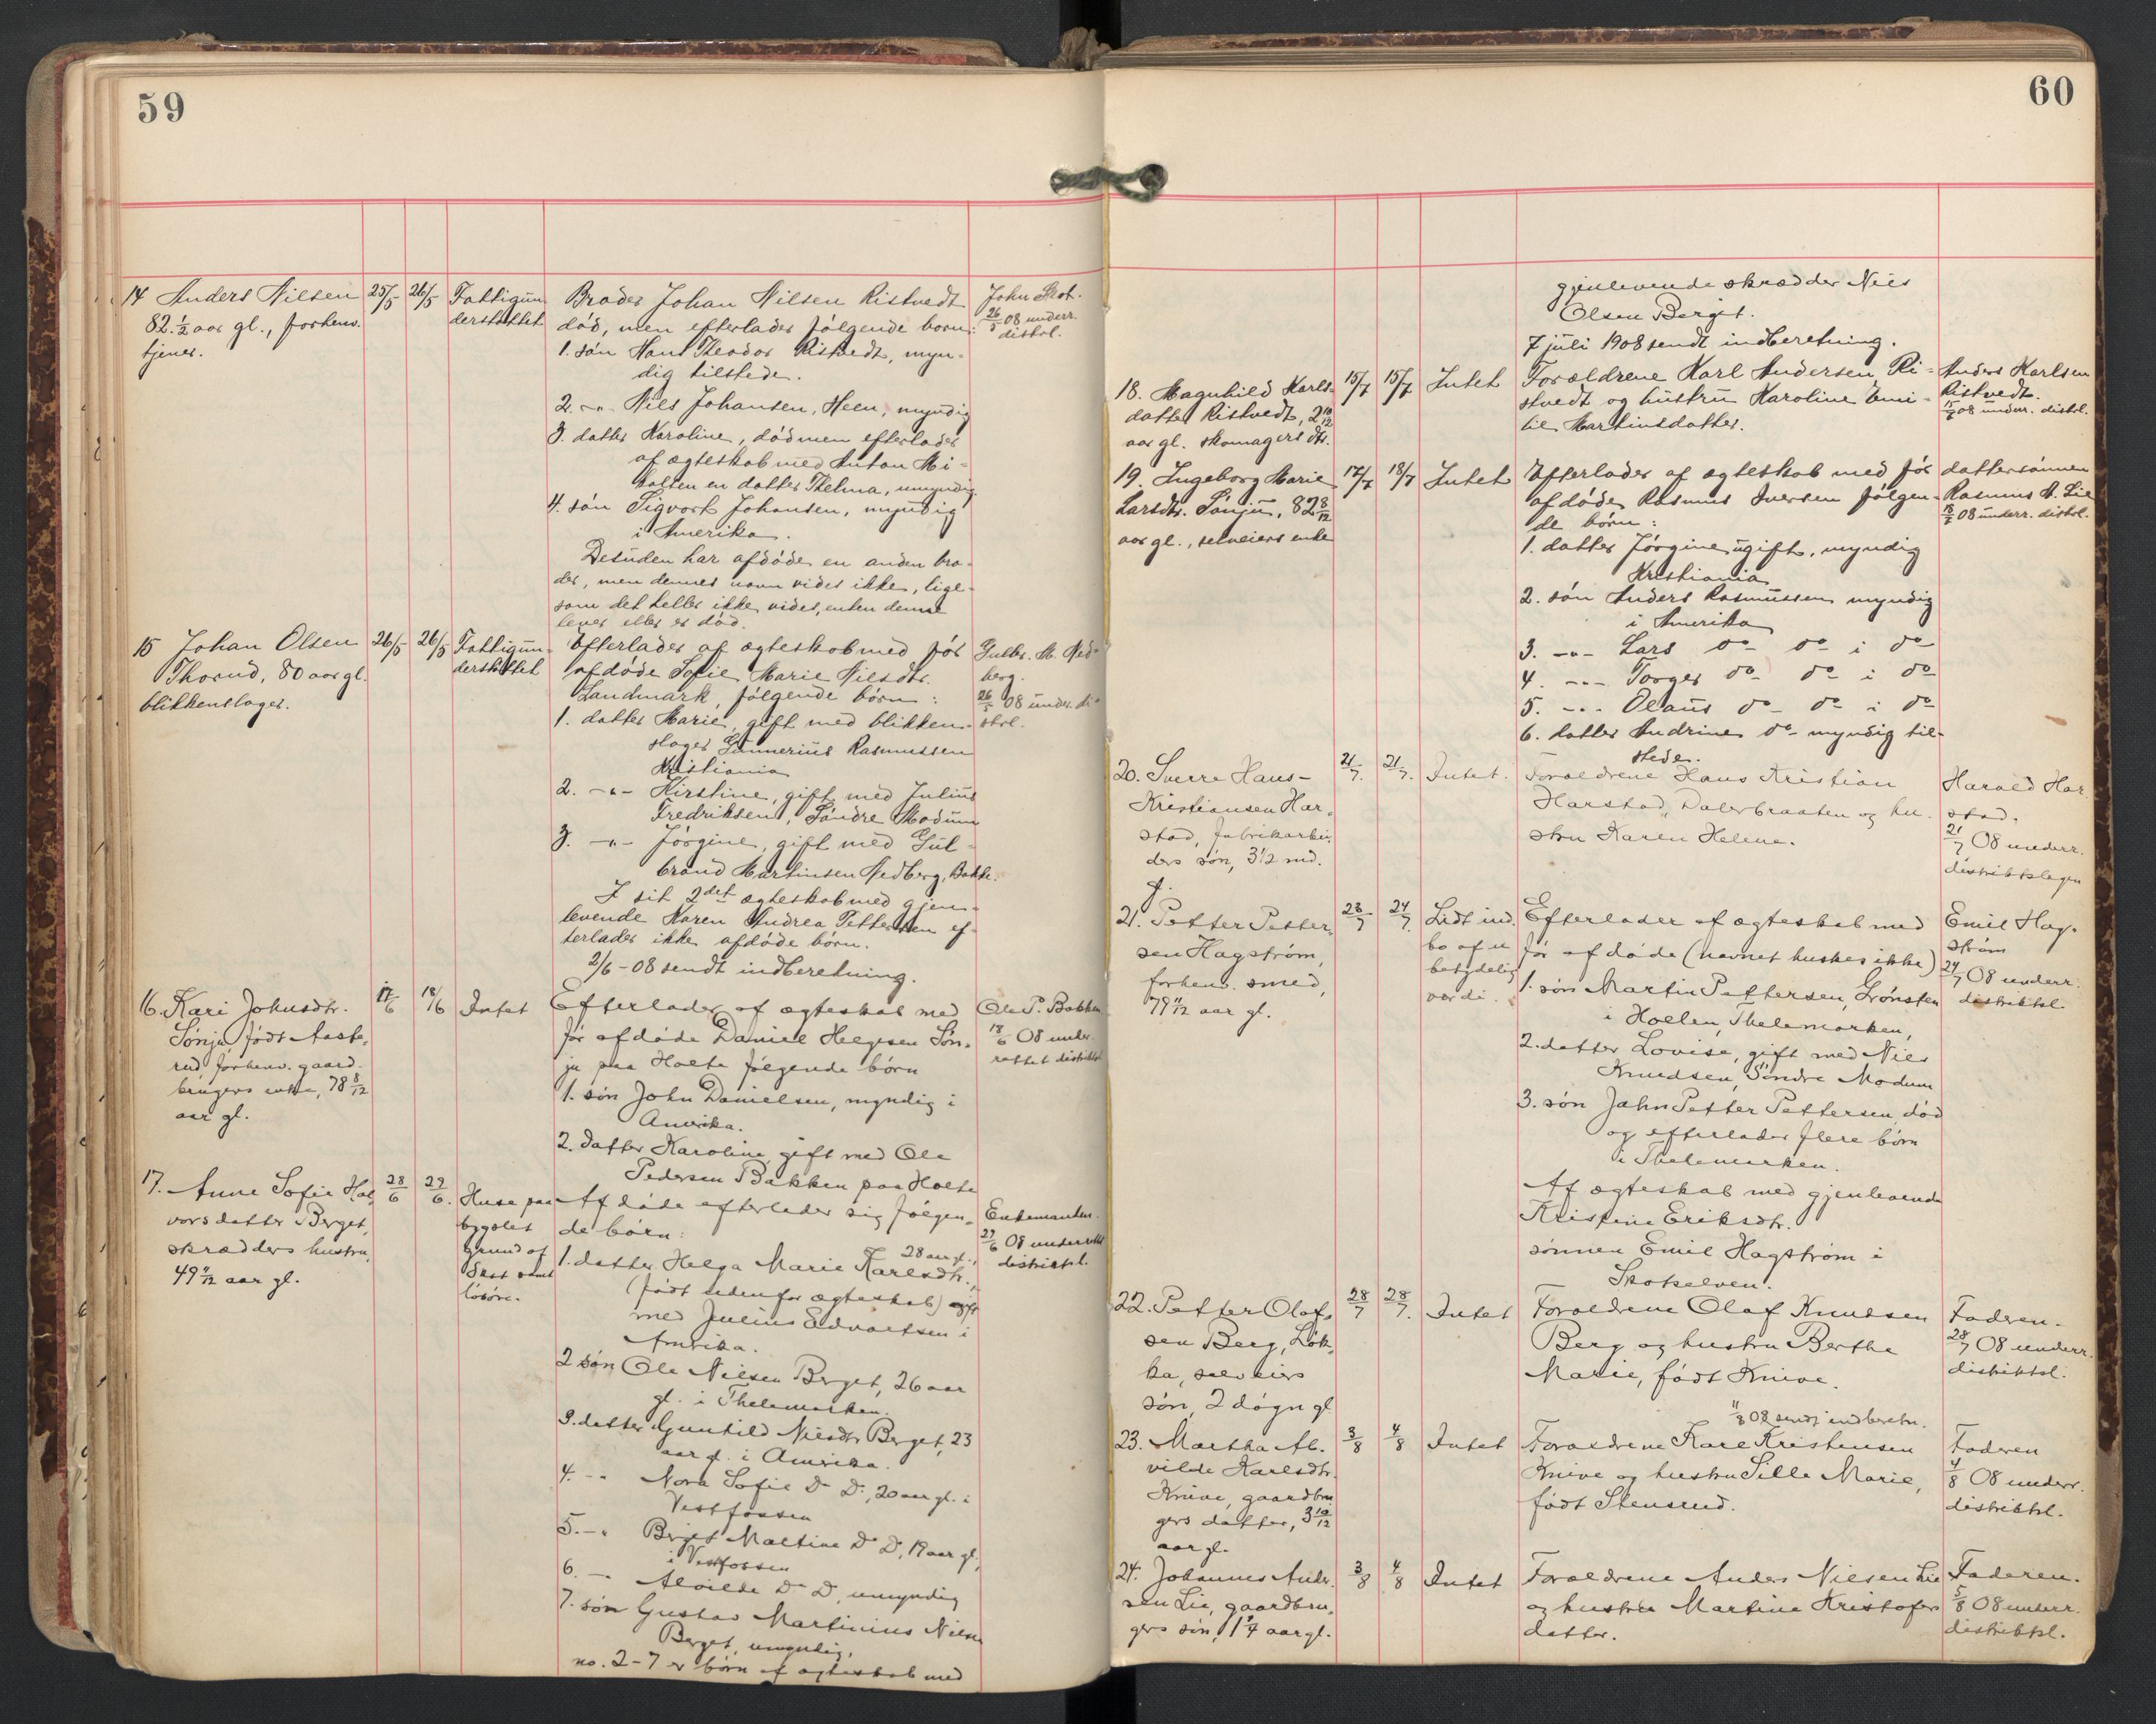 59
14 Anders Nilsen
82 1/2 aar gl., forhenv.
tjener.
25/5
26/5
Fattigun-
derstøttet
Broder Johan Nilsen Ristvedt
død, men efterlader følgende børn:
1. søn Hans Theodor Ristvedt, myn-
dig tilstede.
2. -"- Nils Johansen, Heen, myndig
3. datter Karoline, død men efterlader
af ægteskab med Anton Mi-
kalsen en datter Thelma, umyndig.
4. søn Sigvort Johansen, myndig
i Amerika.
Desuden har afdøde en anden bro-
der, men dennes navn vides ikke, lige-
som det heller ikke vides, enten denne
lever eller er død.
John
26/5 08 underr.
distrl.
15 Johan Olsen
Thorud, 80 aar gl.
blikkenslager.
26/5
26/5
Fattigun-
derstøttet
Efterlader af ægteskab med før
afdøde Sofie Marie Nilsdtr.
Landmark, følgende børn:
1. datter Marie, gift med blikken-
slager Gunnerius Rasmussen
Kristiania
2. -"- Kirstine, gift med Julius
Fredriksen, Søndre Modum
3. -"- Jørgine, gift med Gul-
brand Martinsen Nedberg, Bakke.
I sit 2det ægteskab med gjen-
levende Karen Andrea Pettersen ef-
terlader ikke afdøde børn.
2/6-08 sendt indberetning.
Gulbr. M. Ned-
berg.
26/5 08 under. di-
strl.
16. Kari Johnsdtr.
Sønju født Aaste-
rud forhenv. gaard-
brugers enke, 78 8/12
aar gl.
17/6
18/6
Intet
Efterlader af ægteskab med
før afdøde Daniel Helgesen Søn-
ju paa Holte følgende børn
1. søn John Danielsen, myndig i
Amerika.
2. datter Karoline gift med Ole
Pedersen Bakken paa Holte
Ole P. Bakken
18/6 08 under-
rettet distriktsl.
17. Anne Sofie Hal-
vorsdatter Berget,
skrædders hustru,
49 11/12 aar gl.
28/6
29/6.
Huse paa
bygslet
grund af
samt
løsøre.
Afdøde efterlader sig følgen-
de børn:
1. datter Helga Marie Karlsdtr., 28 aar gl.,
(født udenfor ægteskab) gift
med Julius Edvartsen i
Amerika.
2 søn Ole Nilsen Berget, 26 aar
gl. i Thelemarken.
3. datter Gunhild Nilsdtr Berget, 23
aar gl. i Amerika.
4. -" Nora Sofie Do Do, 20 aar gl. i
Vestfossen
5. -" Berget Maltine Do Do, 19 aar gl.,
i Vestfossen
6. -" Alvilde Do Do, umyndig
7. søn Gustav Martinius Nilsen
Berget, umyndig,
no. 2-7 er børn af ægteskab med
Enkemanden.
29/6 08 underrettet
distriktsl.
60
gjenlevende skrædder Niels
Olsen Berget.
7 juli 1908 sendt indberetning.
18. Magnhild Karls-
datter Ristvedt, 2 10/12
aar gl. skomagers dtr.
15/7
15/7
Intet
Forældrene Karl Andersen Ri-
stvedt og hustru Karoline Emi-
lie Martinsdatter.
Anders Karlsen
Ristvedt.
15/7 08 underr. distrl.
19. Ingeborg Marie
Larsdtr. Sønju, 82 8/12
aar gl., selveiers enke
17/7
18/7
Intet
Efterlader af ægteskab med før
afdøde Rasmus Iversen følgen-
de børn:
1. datter Jørgine ugift, myndig
Kristiania
2. søn Anders Rasmussen myndig
i Amerika
3. -"- Lars do do i do
4. -"- Torger do do i do
5. -"- Olaus do do i do
6. datter Andrine do myndig til-
stede.
dattersønnen
Rasmus A. Lie
18/7 08 underr. distrl.
20. Sverre Hans-
Kristiansen Har-
stad, fabrikarbei-
ders søn, 3 1/2 md.
gl.
21/7.
21/7.
Intet.
Forældrene Hans Kristian
Harstad, Dalerbraaten og hu-
stru Karen Helene.
Harald Har-
stad.
21/7 08 underr.
distriktslægen
21. Petter Petter-
sen Hagstrøm,
forhenv. smed,
79 11/12 aar gl.
23/7
24/7.
Lidt ind-
bo af u
betydelig
værdi.
Efterlader af ægteskab med
før afdøde (navnet huskes ikke)
1. søn Martin Pettersen, Grønsten
i Hollen, Thelemarken,
2. datter Lovise, gift med Nils
Knudsen, Søndre Modum
3. søn John Petter Pettersen, død
og efterlader flere børn
i Thelemarken.
Af ægteskab med gjenlevende
Kristine Eriksdtr.
sønnen Emil Hagstrøm i
Skotselven.
Emil Hag-
strøm
24/7 08 underr.
distriktsl.
22. Petter Olaf-
sen Berg, Løk-
ka, selveiers
søn, 2 døgn gl
28/7
28/7.
Intet
Forældrene Olaf Knutsen
Berg og hustru Berthe
Marie, født Knive.
11/8 08 sendt indberetn.
Faderen.
28/7 08 underr.
distriktsl.
23. Martha Al-
vilde Karlsdtr.
Knive, gaardbru
gers datter, 3 10/12
aar gl.
3/8
4/8
Intet
Forældrene Karl Kristensen
Knive og hustru Sille Marie,
født Stensrud.
Faderen
4/8 08 underr.
distriktsl.
24. Johannes Ander-
sen Lie, gaardbru-
gers søn, 1 1/4 aar gl.
3/8
4/8
Intet
Forældrene Anders Nilsen Lie
og hustru Martine Kristofers
datter.
Faderen.
5/8 08 underr.
distriktsl.